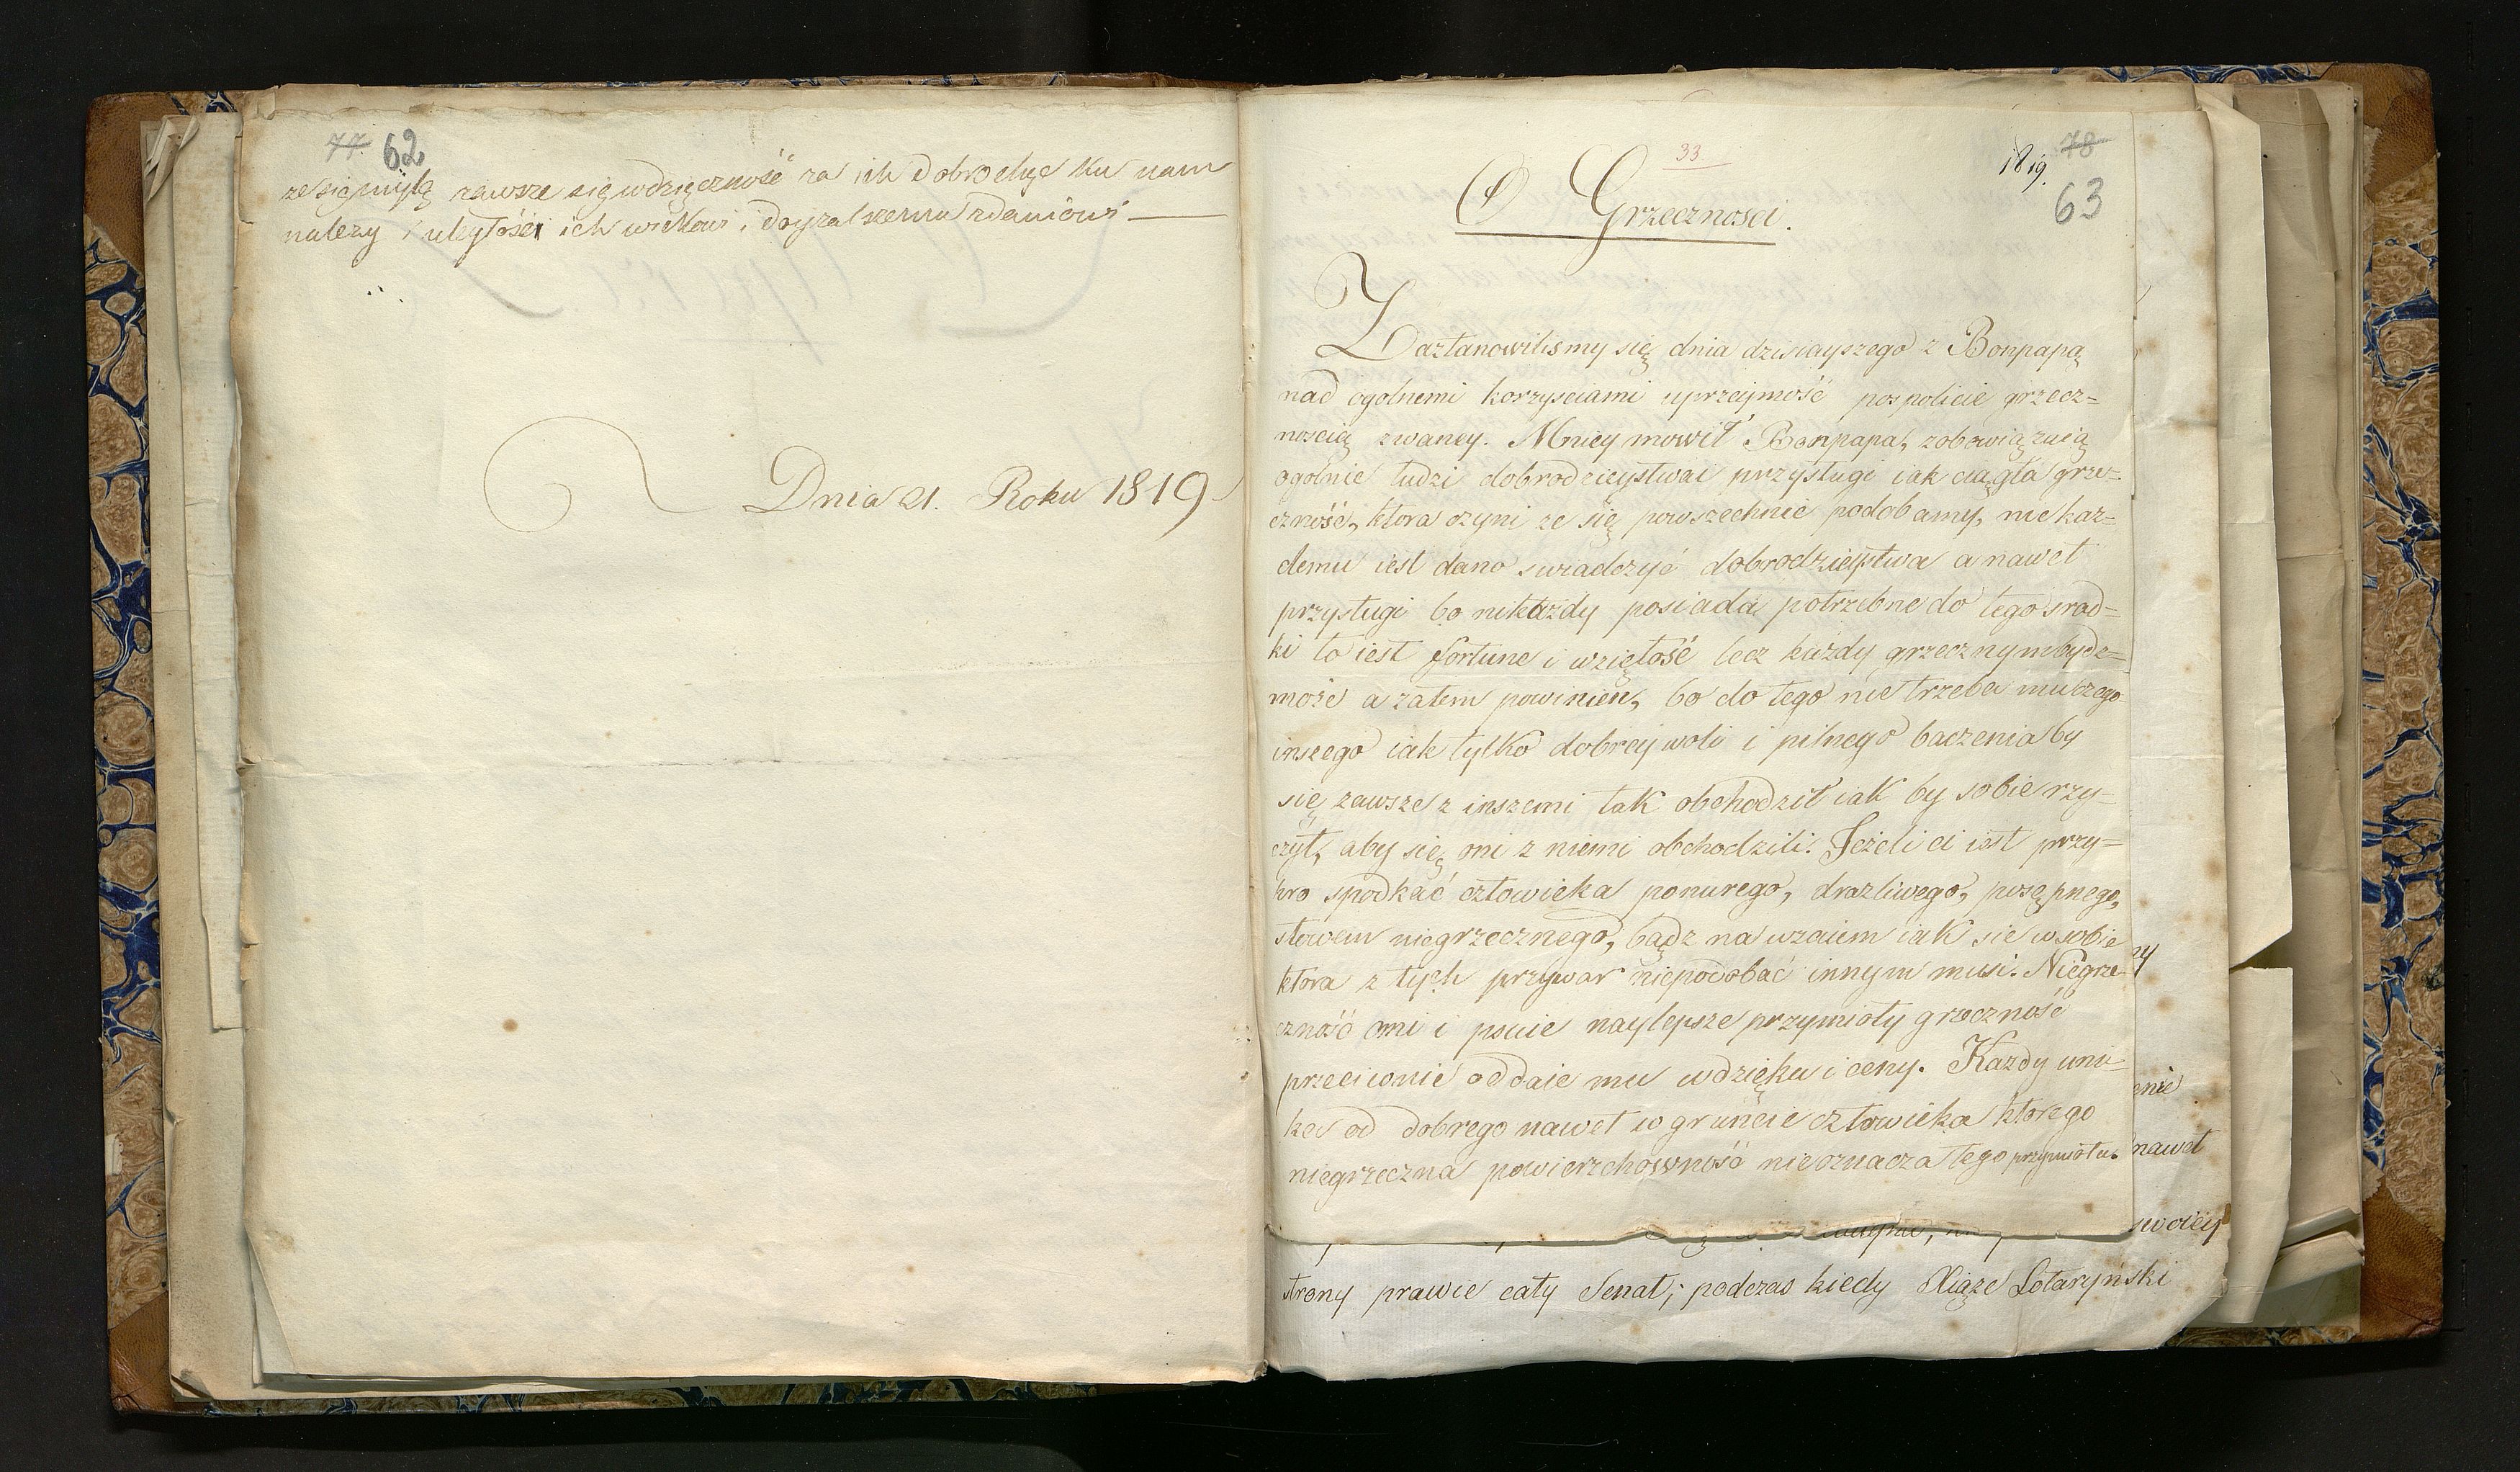 77 62
ze się mylą zawsze się wdzięczność za ich dobrochęc ku nam
nalezy i uległości ich wiekowi i doyzalszemu zdaniowi —
Dnia 21. Roku 1819
33
1819.
78
63
O Grzecznosci.
Zaztanowilismy się dnia dzisiayszego z Bonpapą
nad ogolnemi korzysciami uprzeymość pospolicie grzecz=
noscią zwaney. Mniey mowił Bonpapa, zobowiązuią
ogolnie ludzi dobrodzieystwa i przysługi iak ciągła grze=
czność, ktora czyni ze się powszechnie podobamy, nie kaz=
demu iest dano swiadczyć dobrodzieystwa a nawet
przysługi bo nikażdy posiada potrzebne do tego srod=
ki to iest fortune i wziętość lecz każdy grzecznym bydz=
może a zatem powinien, bo do tego nie trzeba mu czego
inszego iak tylko dobrey woli i pilnego baczenia by
się zawsze z inszemi tak obchodził iak by sobie rzy=
czył, aby się oni z niemi obchodzili. Jeżeli ci iest przy=
kro spodkać człowieka ponurego, drazliwego, posępnego,
słowem niegrzecznego, bądz na wzaiem iak sie w sobie
ktora z tych przywar niepodobać innym musi. Niegrze=
czność cmi i psuie naylepsze przymioty grzeczność
przeciwnie oddaie mu wdzięku i ceny. Kazdy uni=
ka od dobrego nawet w gruncie człowieka ktorego
niegrzeczna powierzchowność nie oznacza tego przymiotu.
ny
enie
nawet
swoiey
strony prawie cały Senat; podczas kiedy Xiąze Lotaryński